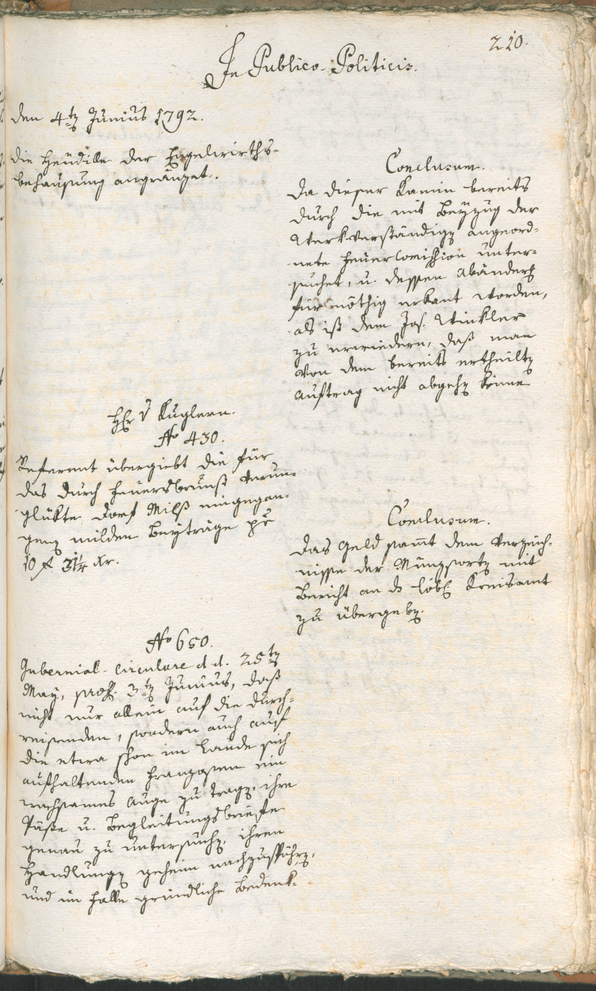 210.
In Publico-Politicis.
den 4ten Junius 1792.
die Heudille der Engelwirths-
behausung angränzet.
Conclusum.
Da dieser Kamin bereits
durch die mit Beyzug der
Werkverständigen angeord-
nete Feuercommission unter-
suchet, u. dessen Abänderung
für nöthig erkant worden,
als ist dem Jos. Winkler
zu erwiedern, daß man
von dem bereits ertheilten
Auftrag nicht abgehen könne
H. v Kuglern.
No 430.
Referent übergiebt die für
das durch Feuersbrunst verun-
glükte Dorf Mils eingegan-
genen milden Beyträge pr
10 f 31¼ xr.
Conclusum.
Das Geld samt dem Verzeich-
nisse der Münzsorten mit
Bericht an das löbl. Kreisamt
zu übergeben.
No 650.
Gubernial-Circulare d.d. 25ten
May, prs. 3ten Junius, daß
nicht nur allein auf die durch-
reisenden, sondern auch auf
die etwa schon im Lande sich
aufhaltenden Franzosen ein
wachsames Auge zu tragen, ihre
Päße u. Begleitungsbriefe
genau zu untersuchen, ihren
Handlungen geheim nachzuspühren,
und im Falle gründliche Bedenk-